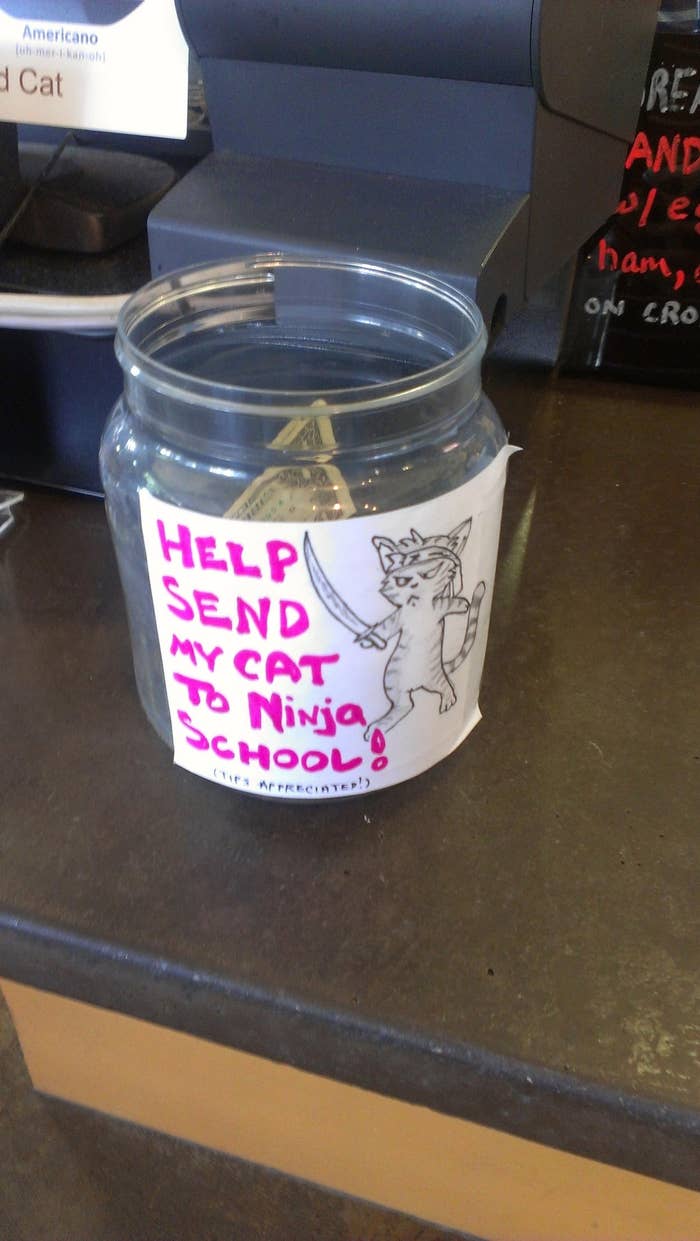 Americano
[uh-mer-i-kan-oh]
d Cat
AND
ham,
ON CRO
HELP
SEND
MY CAT
TO NiNja
SCHOOL!
(TIPS APPRECIATED!)